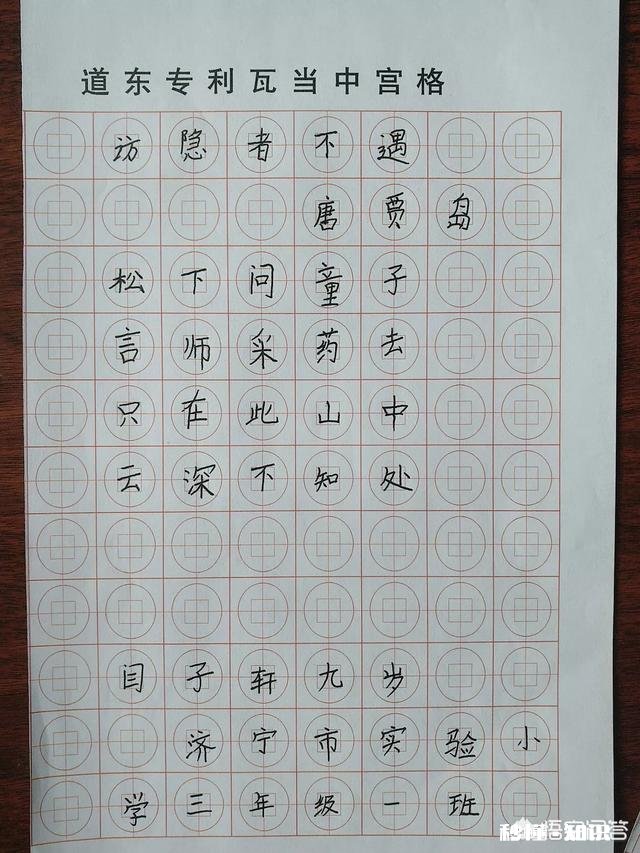 道东专利瓦当中宫格
访隐者不遇
唐贾岛
松下问童子
言师采药去
只在此山中
云深不知处
闫子轩九岁
济宁市实验小
学三年级一班
悟空问答